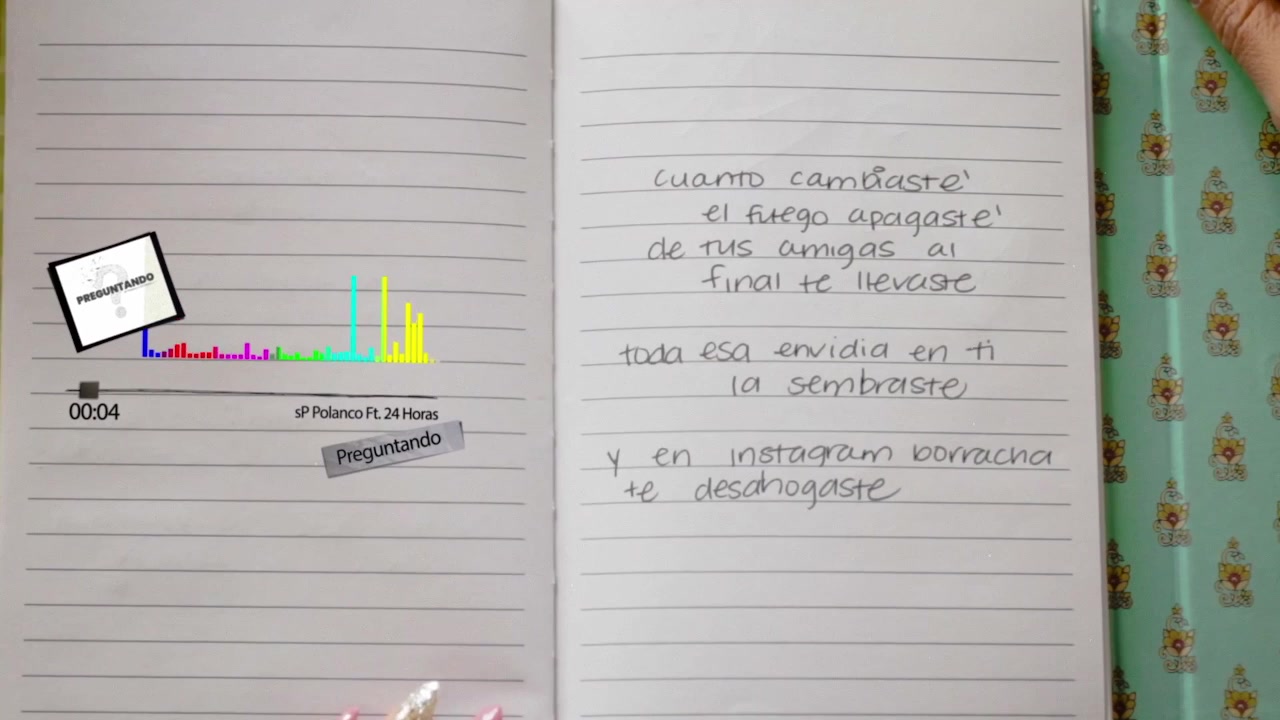 PREGUNTANDO
00:04
sP Polanco Ft. 24 Horas
Preguntando
cuanto cambiaste'
el fuego apagaste'
de tus amigas al
final te llevaste
toda esa envidia en ti
la sembraste
y en instagram borracha
te desahogaste